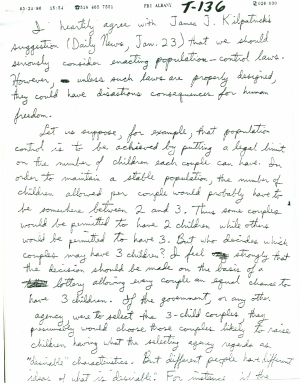 03/24 96 15:54 518 465 7551 FBI ALBANY T-136 028/030
I heartily agree with James J. Kilpatrick's
suggestion (Daily News, Jan. 23) that we should
seriously consider enacting population-control laws.
However, unless such laws are properly designed,
they could have disastrous consequences for human
freedom.
Let us suppose, for example, that population
control is to be achieved by putting a legal limit
on the number of children each couple can have. In
order to maintain a stable population, the number of
children allowed per couple would probably have to
be somewhere between 2 and 3. Thus some couples
would be permitted to have 2 children while others
would be permitted to have 3. But who decides which
couples may have 3 children? I feel strongly that
the decision should be made on the basis of a
lottery allowing every couple an equal chance to
have 3 children. If the government, or any other
agency were to select the 3-child couples, they
presumably would choose those couples likely to raise
children having what the selecting agency regards as
"desirable" characteristics. But different people have different
ideas of what is desirable. For instance if the